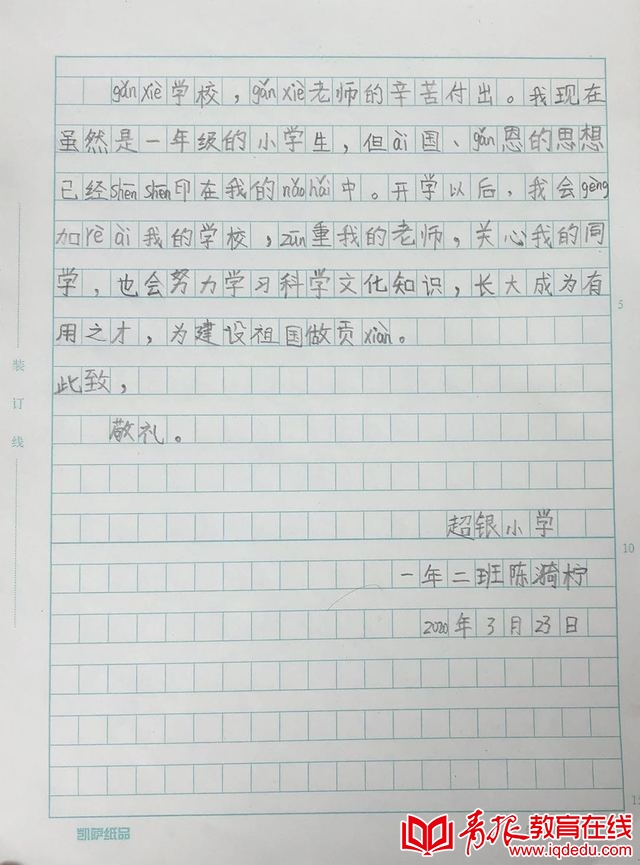 gǎn xiè学校，gǎn xiè老师的辛苦付出。我现在
虽然是一年级的小学生，但ài国、gǎn恩的思想
已经shēn shēn印在我的nǎo hǎi中。开学以后，我会gèng
加rè ài我的学校，zūn重我的老师，关心我的同
学，也会努力学习科学文化知识，长大成为有
用之才，为建设祖国做贡xiàn。
此致，
敬礼。
超银小学
一年二班陈漪柠
2020年3月23日
装订线
5
10
15
凯萨纸品
青报教育在线
www.iqdedu.com